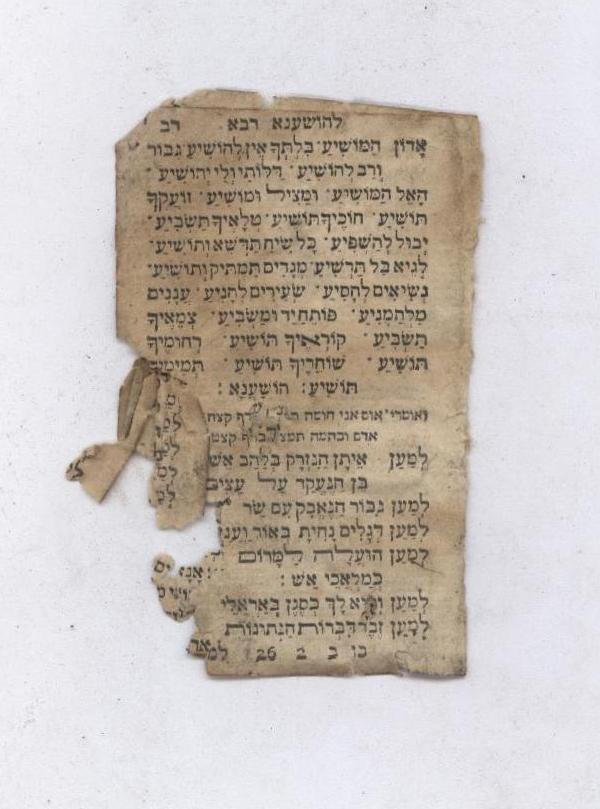 להושענא רבא רב
אָדוֹן הַמּוֹשִׁיעַ· בִּלְתְּךָ אֵין לְהוֹשִׁיעַ· גִּבּוֹר
וְרַב לְהוֹשִׁיעַ· דַּלּוֹתִי וְלִי יְהוֹשִׁיעַ·
הָאֵל הַמּוֹשִׁיעַ· וּמַצִּיל וּמוֹשִׁיעַ· זוֹעֲקֶיךָ
תּוֹשִׁיעַ· חוֹכֶיךָ תּוֹשִׁיעַ· טְלָאֶיךָ תַּשְׂבִּיעַ·
יְבוּל לְהַשְׁפִּיעַ· כָּל שִׂיחַ תַּדְשֵׁא וְתוֹשִׁיעַ·
לְגֵיא בַּל תַּרְשִׁיעַ· מְגָדִים תַּמְתִּיק וְתוֹשִׁיעַ·
נְשִׂיאִים לְהַסִּיעַ· שְׂעִירִים לְהָנִיעַ· עֲנָנִים
מִלְּהַמְנִיעַ· פּוֹתֵחַ יָד וּמַשְׂבִּיעַ· צְמֵאֶיךָ
תַּשְׂבִּיעַ· קוֹרְאֶיךָ תּוֹשִׁיעַ· רְחוּמֶיךָ
תּוֹשִׁיעַ· שׁוֹחֲרֶיךָ תּוֹשִׁיעַ· תְּמִימֶיךָ
תּוֹשִׁיעַ: הוֹשַׁעֲנָא:
אני חומה
אדם ובהמה
לְמַעַן אֵיתָן הַנִּזְרָק בְּלַהַב אֵשׁ
בֵּן הַנֶּעֱקַד עַל עֵצִים
לְמַעַן גִּבּוֹר הַנֶּאֱבַק עִם שַׂר
לְמַעַן דְּגָלִים נָחִיתָ בְּאוֹר וַעֲנַן
לְמַעַן הוֹעֲלָה לַמָּרוֹם
כְּמַלְאֲכֵי אֵשׁ:
לְמַעַן וְהוּא לָךְ כְּסֶגֶן בְּאֶרְאֶלֵּי
לְמַעַן זֶבֶד דִּבְּרוֹת הַנְּתוּנוֹת
כו ב 2 26 למ